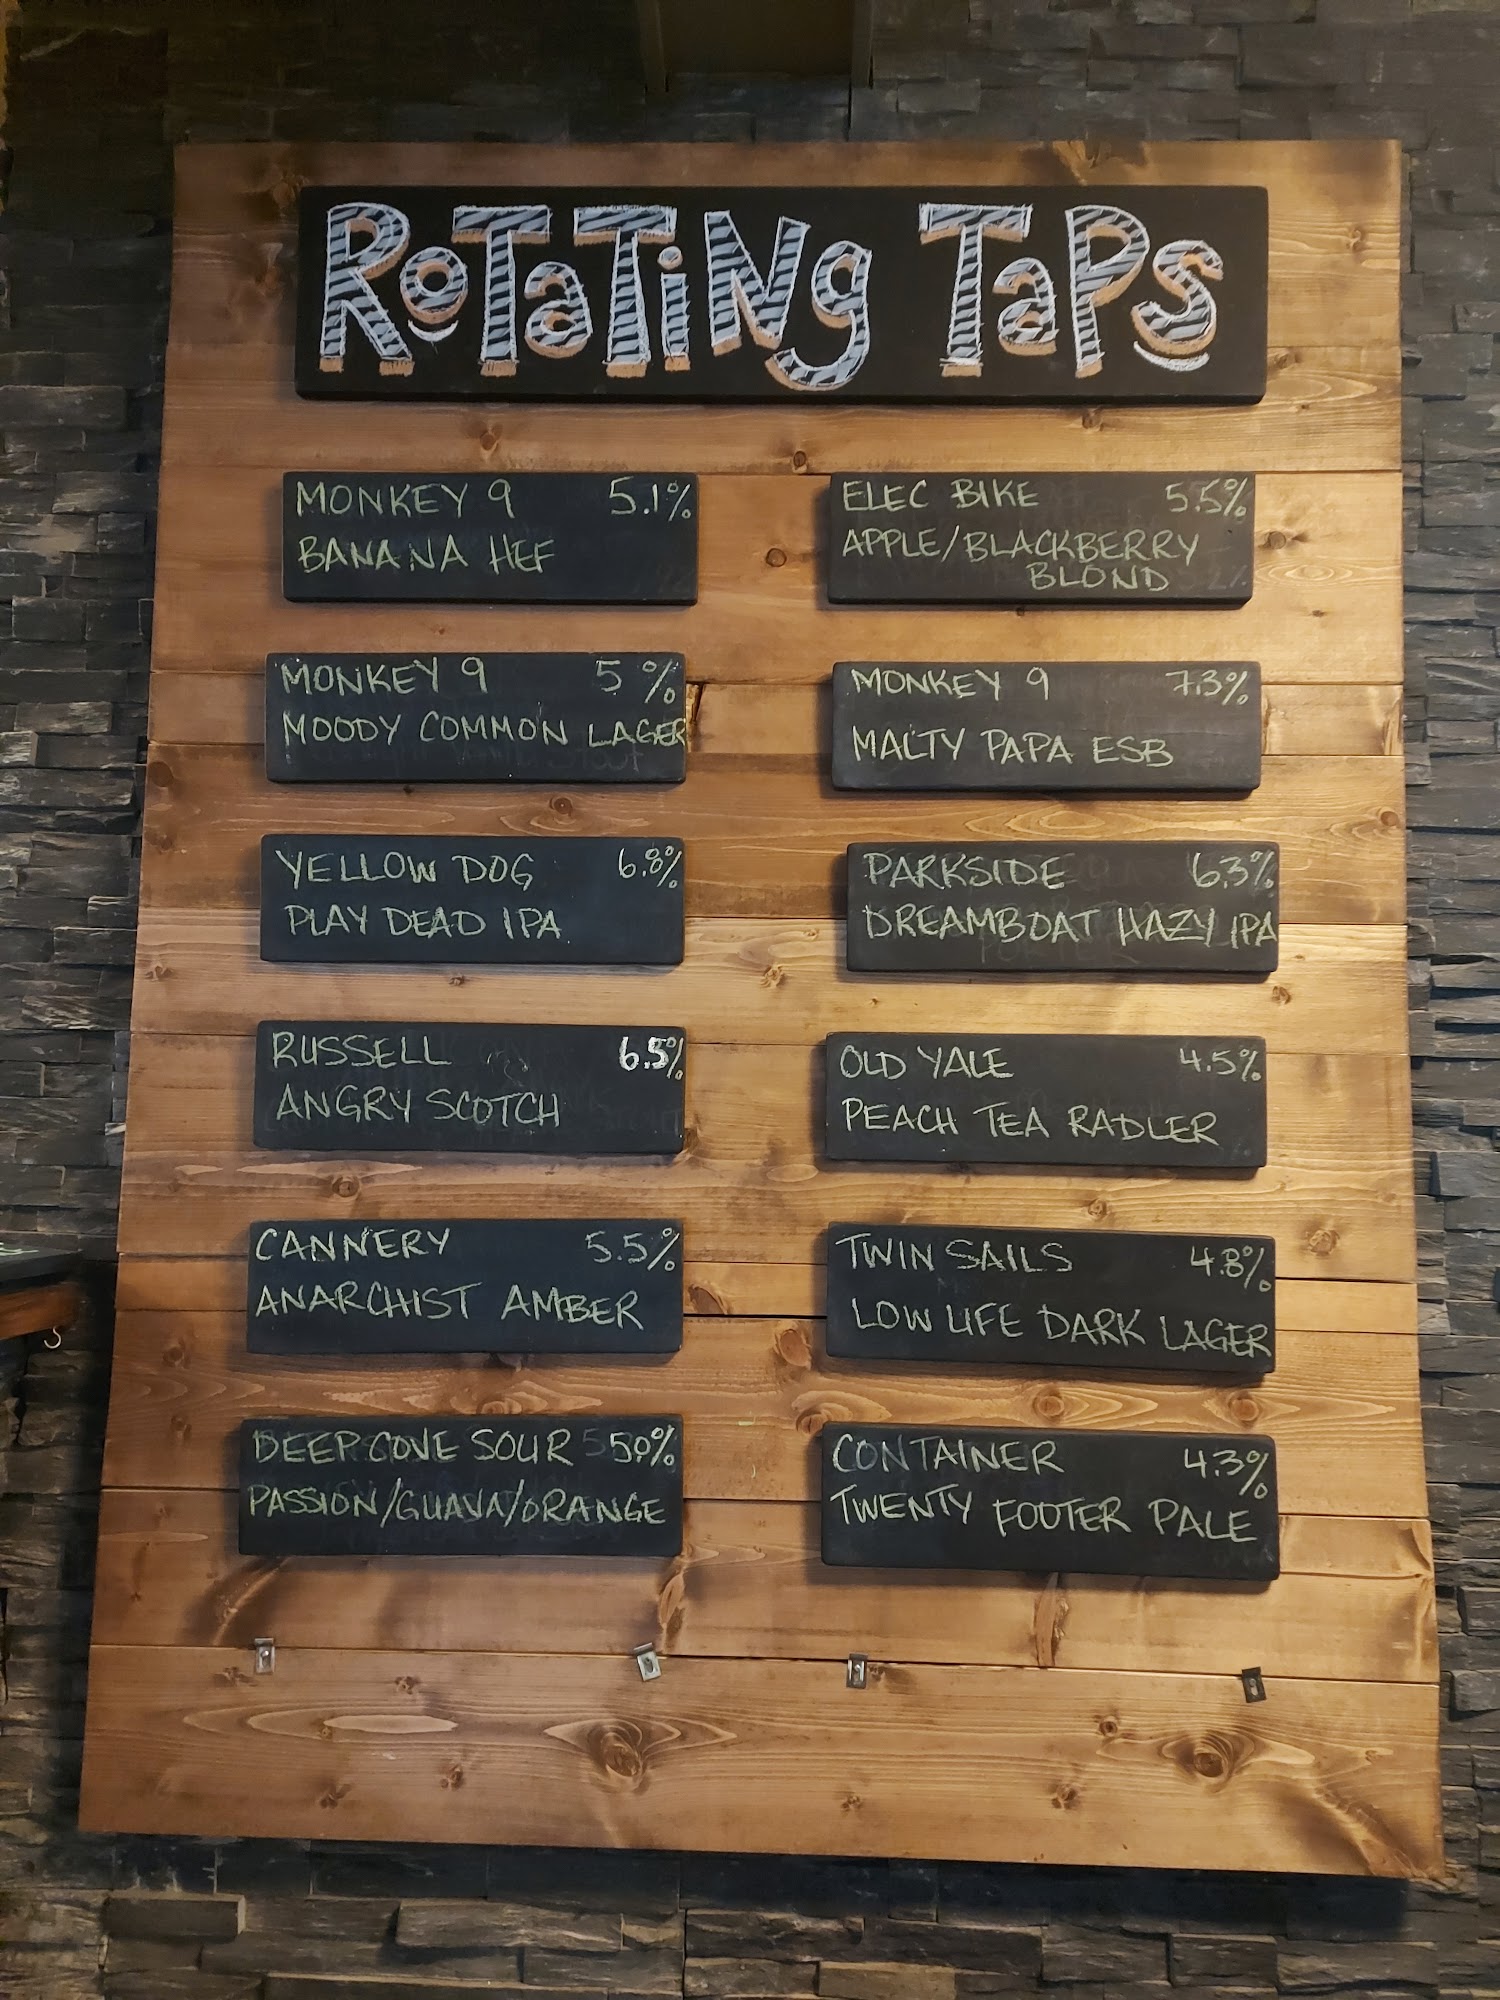 ROTATING TAPS
MONKEY 9 5.1%
BANANA HEF
MONKEY 9 5%
MOODY COMMON LAGER
YELLOW DOG 6.8%
PLAY DEAD IPA
RUSSELL 6.5%
ANGRY SCOTCH
CANNERY 5.5%
ANARCHIST AMBER
DEEP COVE SOUR 5.0%
PASSION/GUAVA/ORANGE
ELEC BIKE 5.5%
APPLE/BLACKBERRY
BLOND
MONKEY 9 7.3%
MALTY PAPA ESB
PARKSIDE 6.3%
DREAMBOAT HAZY IPA
OLD YALE 4.5%
PEACH TEA RADLER
TWIN SAILS 4.8%
LOW LIFE DARK LAGER
CONTAINER 4.3%
TWENTY FOOTER PALE